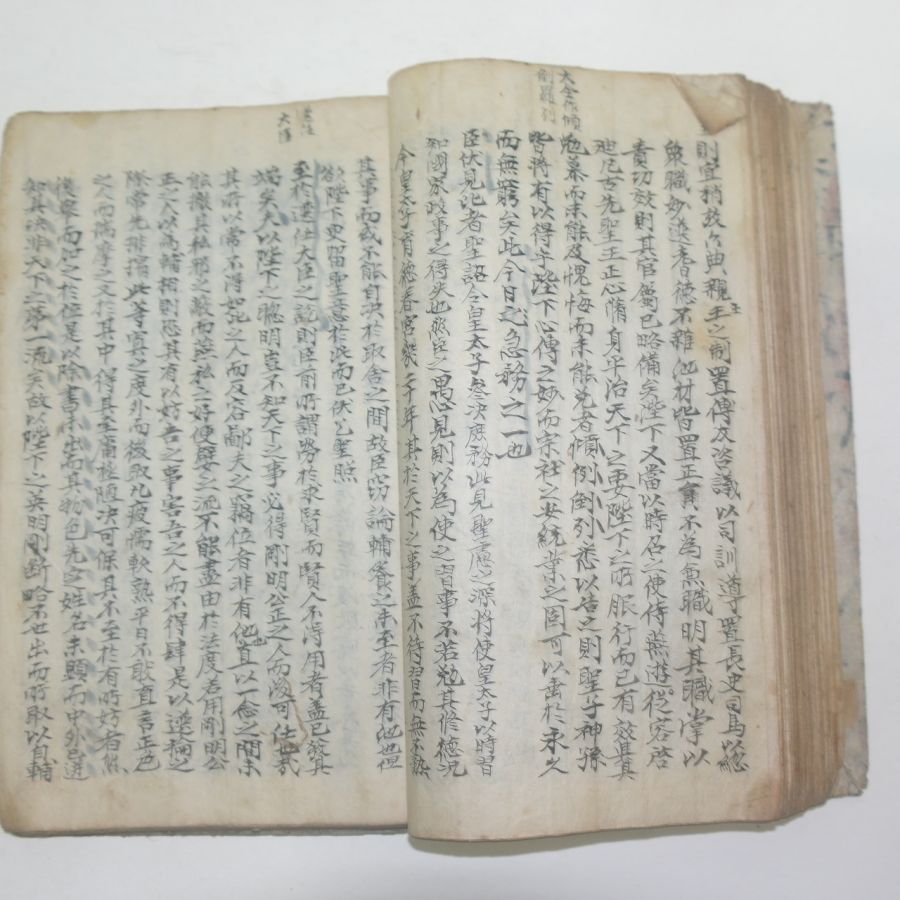 大全作傾
倒羅列
則宜稍放六典親王之制置傅及咨議以司訓導置長史司馬以總
衆職妙選耆德不雜他材皆置正員不為兼職明其職掌以
責功效則其官屬已略備矣陛下又當以時召之使侍燕游從容啓
迪凡古先聖王正心脩身平治天下之要陛下之所服行而已有效與其
勉慕而未能及愧悔而未能免者傾倒倒列悉以告之則聖子神孫
皆將有以得乎陛下心傳之妙而宗社之安統業之固可以垂於永久
而無窮矣此今日之急務之一也
臣伏見比者聖詔令皇太子叅決庶務此見聖慮之深將使皇太子以時習
知國家政事之得失也然臣之愚見則以為使之習事不若勉其修德况
今皇太子育德春宮幾二十年其於天下之事盖不待習而無不熟
選任
大臣
其事而或不能自決於取舍之間故臣竊論輔養之未至者非有他也但
欲陛下更留聖意於此而已伏乞聖照
至於選任大臣之說則臣前所謂勞於求賢而賢人不得用者盖已發其
端矣夫以陛下之聰明豈不知天下之事必得剛明公正之人而後可任哉
其所以常不得如此之人而反容鄙夫之竊位者非有他直以一念之間未
能撤其私邪之蔽而燕私之好便嬖之流不能盡由於法度若用剛明公
正之人以為輔相則恐其有以妨吾之事害吾之人而不得肆是以選掄之
際常先排擯此等寘之度外而後取凡疲懦軟熟平日不敢直言正色
之人而揣摩之又於其中得其至庸極陋決可保其不至於有所妨者然
後擧而加之於位是以除書未出而其物色先定姓名未顯而中外已逆
知其決非天下之第一流矣故以陛下之英明剛斷略不世出而所取以自輔